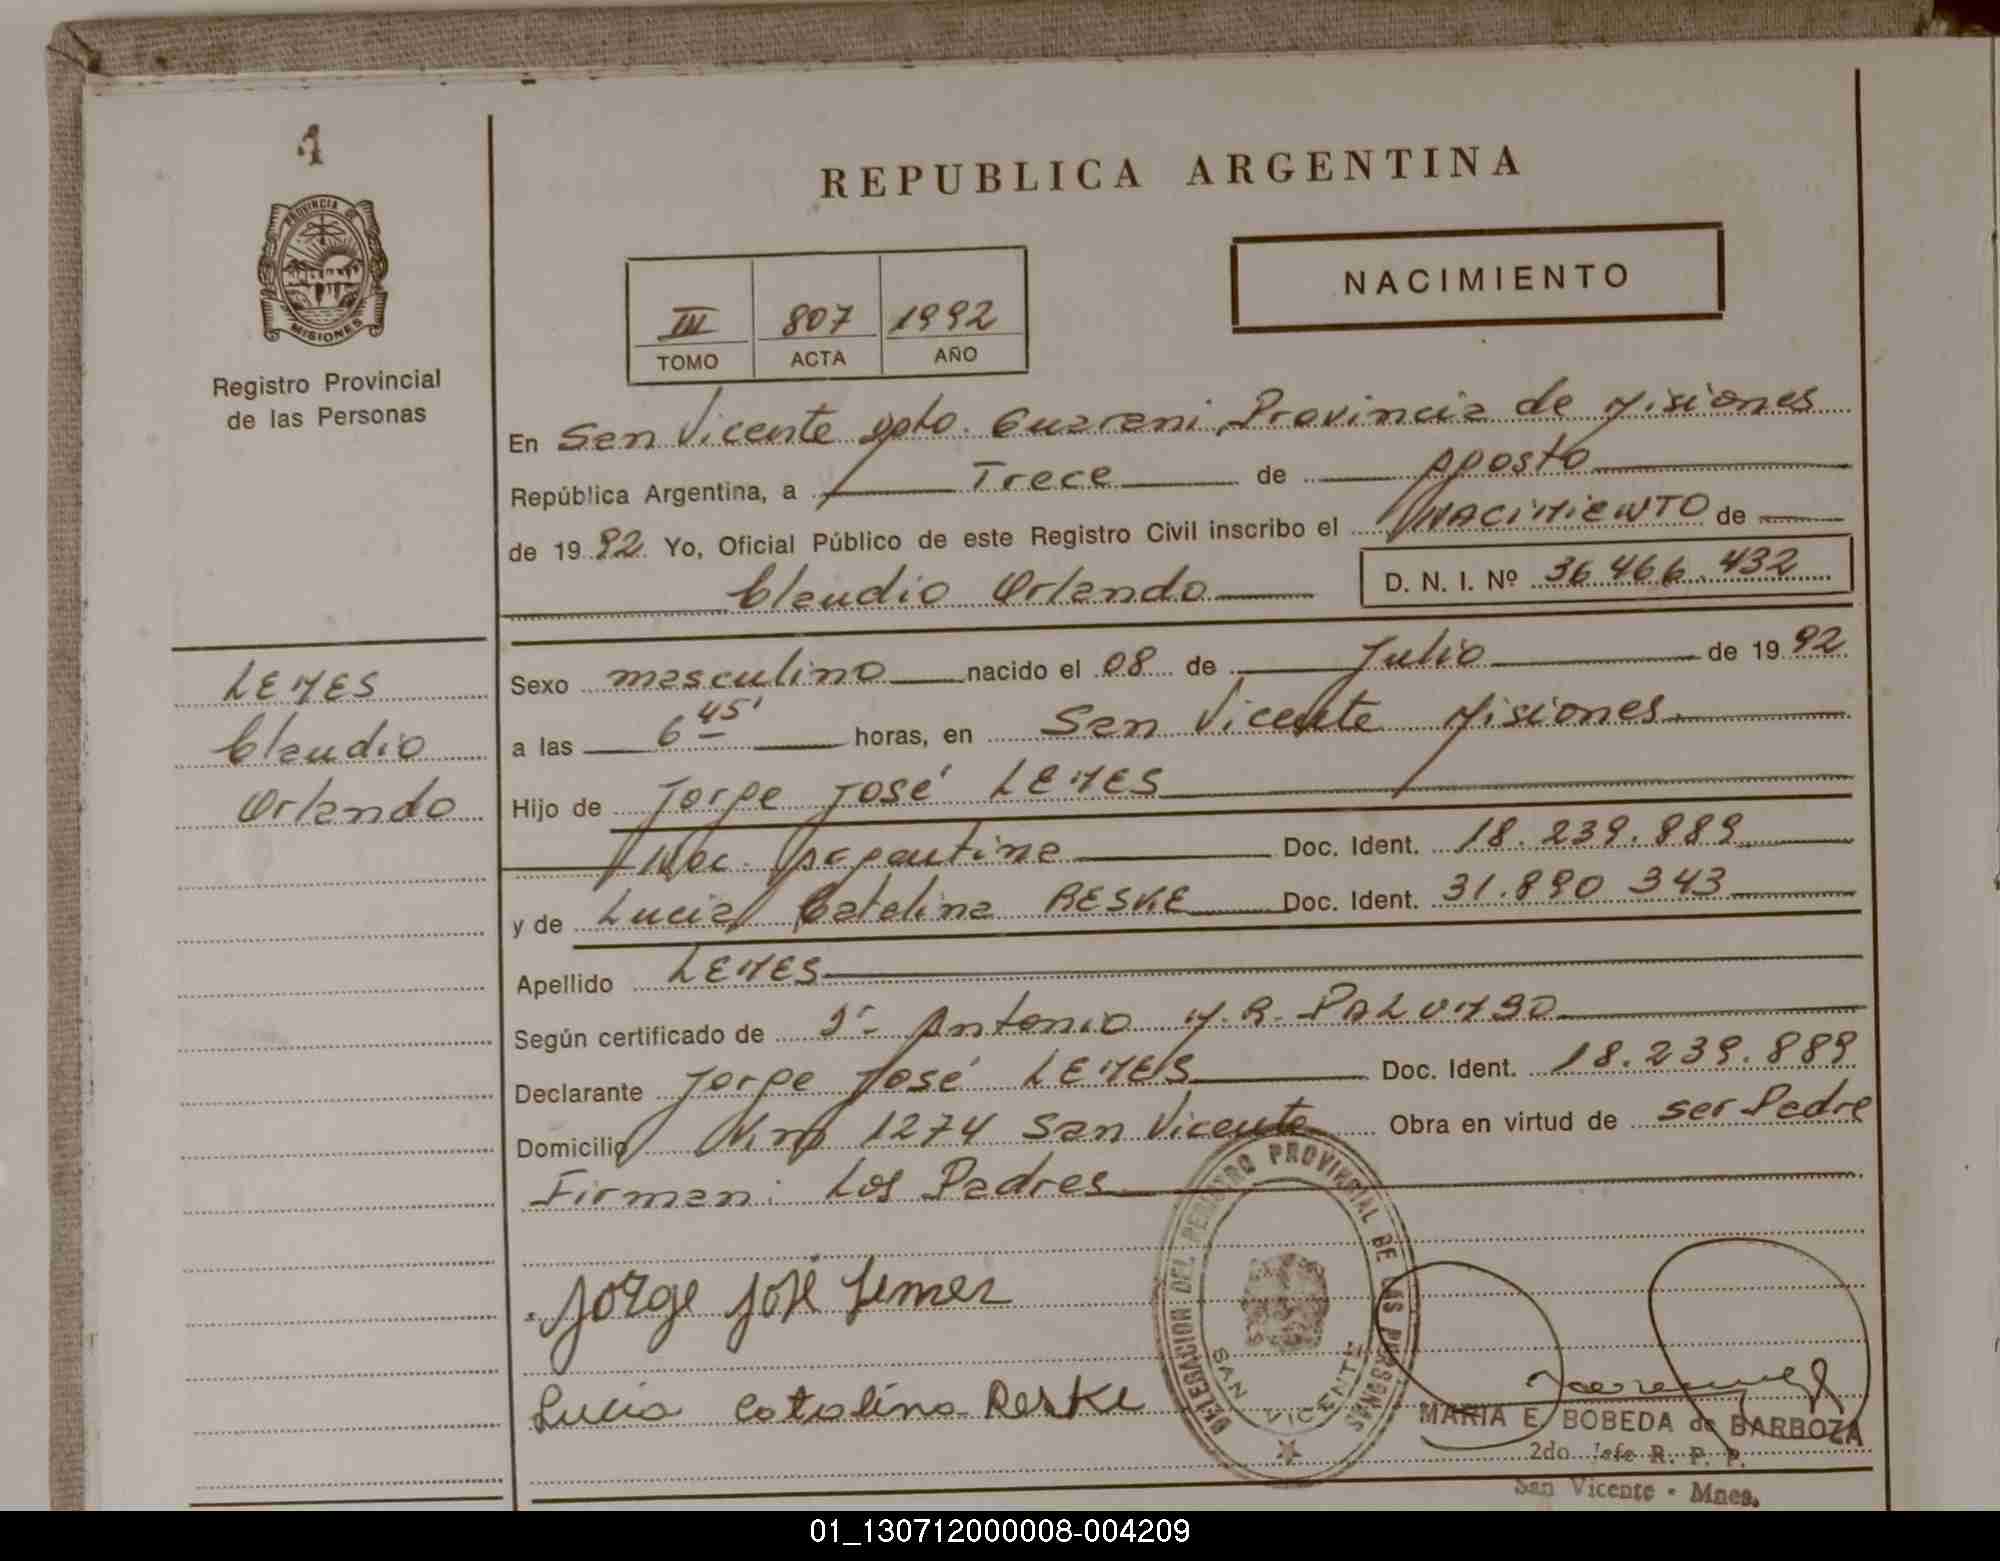 1
PROVINCIA DE
MISIONES
Registro Provincial
de las Personas
REPUBLICA ARGENTINA
NACIMIENTO
III 807 1992
TOMO ACTA AÑO
En San Vicente Dpto. Guarani, Provincia de Misiones
República Argentina, a Trece de Agosto
de 1992. Yo, Oficial Público de este Registro Civil inscribo el NACIMIENTO de
Claudio Orlando D. N. I. Nº 36 466.432
LEMES
Claudio
Orlando
Sexo masculino nacido el 08 de Julio de 1992
a las 6 45' horas, en San Vicente Misiones
Hijo de Jorge José LEMES
Nac. Argentina Doc. Ident. 18.239.889
y de Lucia Catalina RESKE Doc. Ident. 31.890 343
Apellido LEMES
Según certificado de Antonio M.R.
Declarante Jorge José LEMES Doc. Ident. 18.239.889
Domicilio Km 1274 San Vicente Obra en virtud de ser Padre
Firman: Los Padres
Jorge José Lemes
Lucia Catalina Reske
DELEGACION DEL REGISTRO PROVINCIAL DE LAS PERSONAS
SAN VICENTE
MARIA E. BOBEDA de BARBOZA
2do. Jefe R. P. P.
San Vicente - Mnes.
01_130712000008-004209